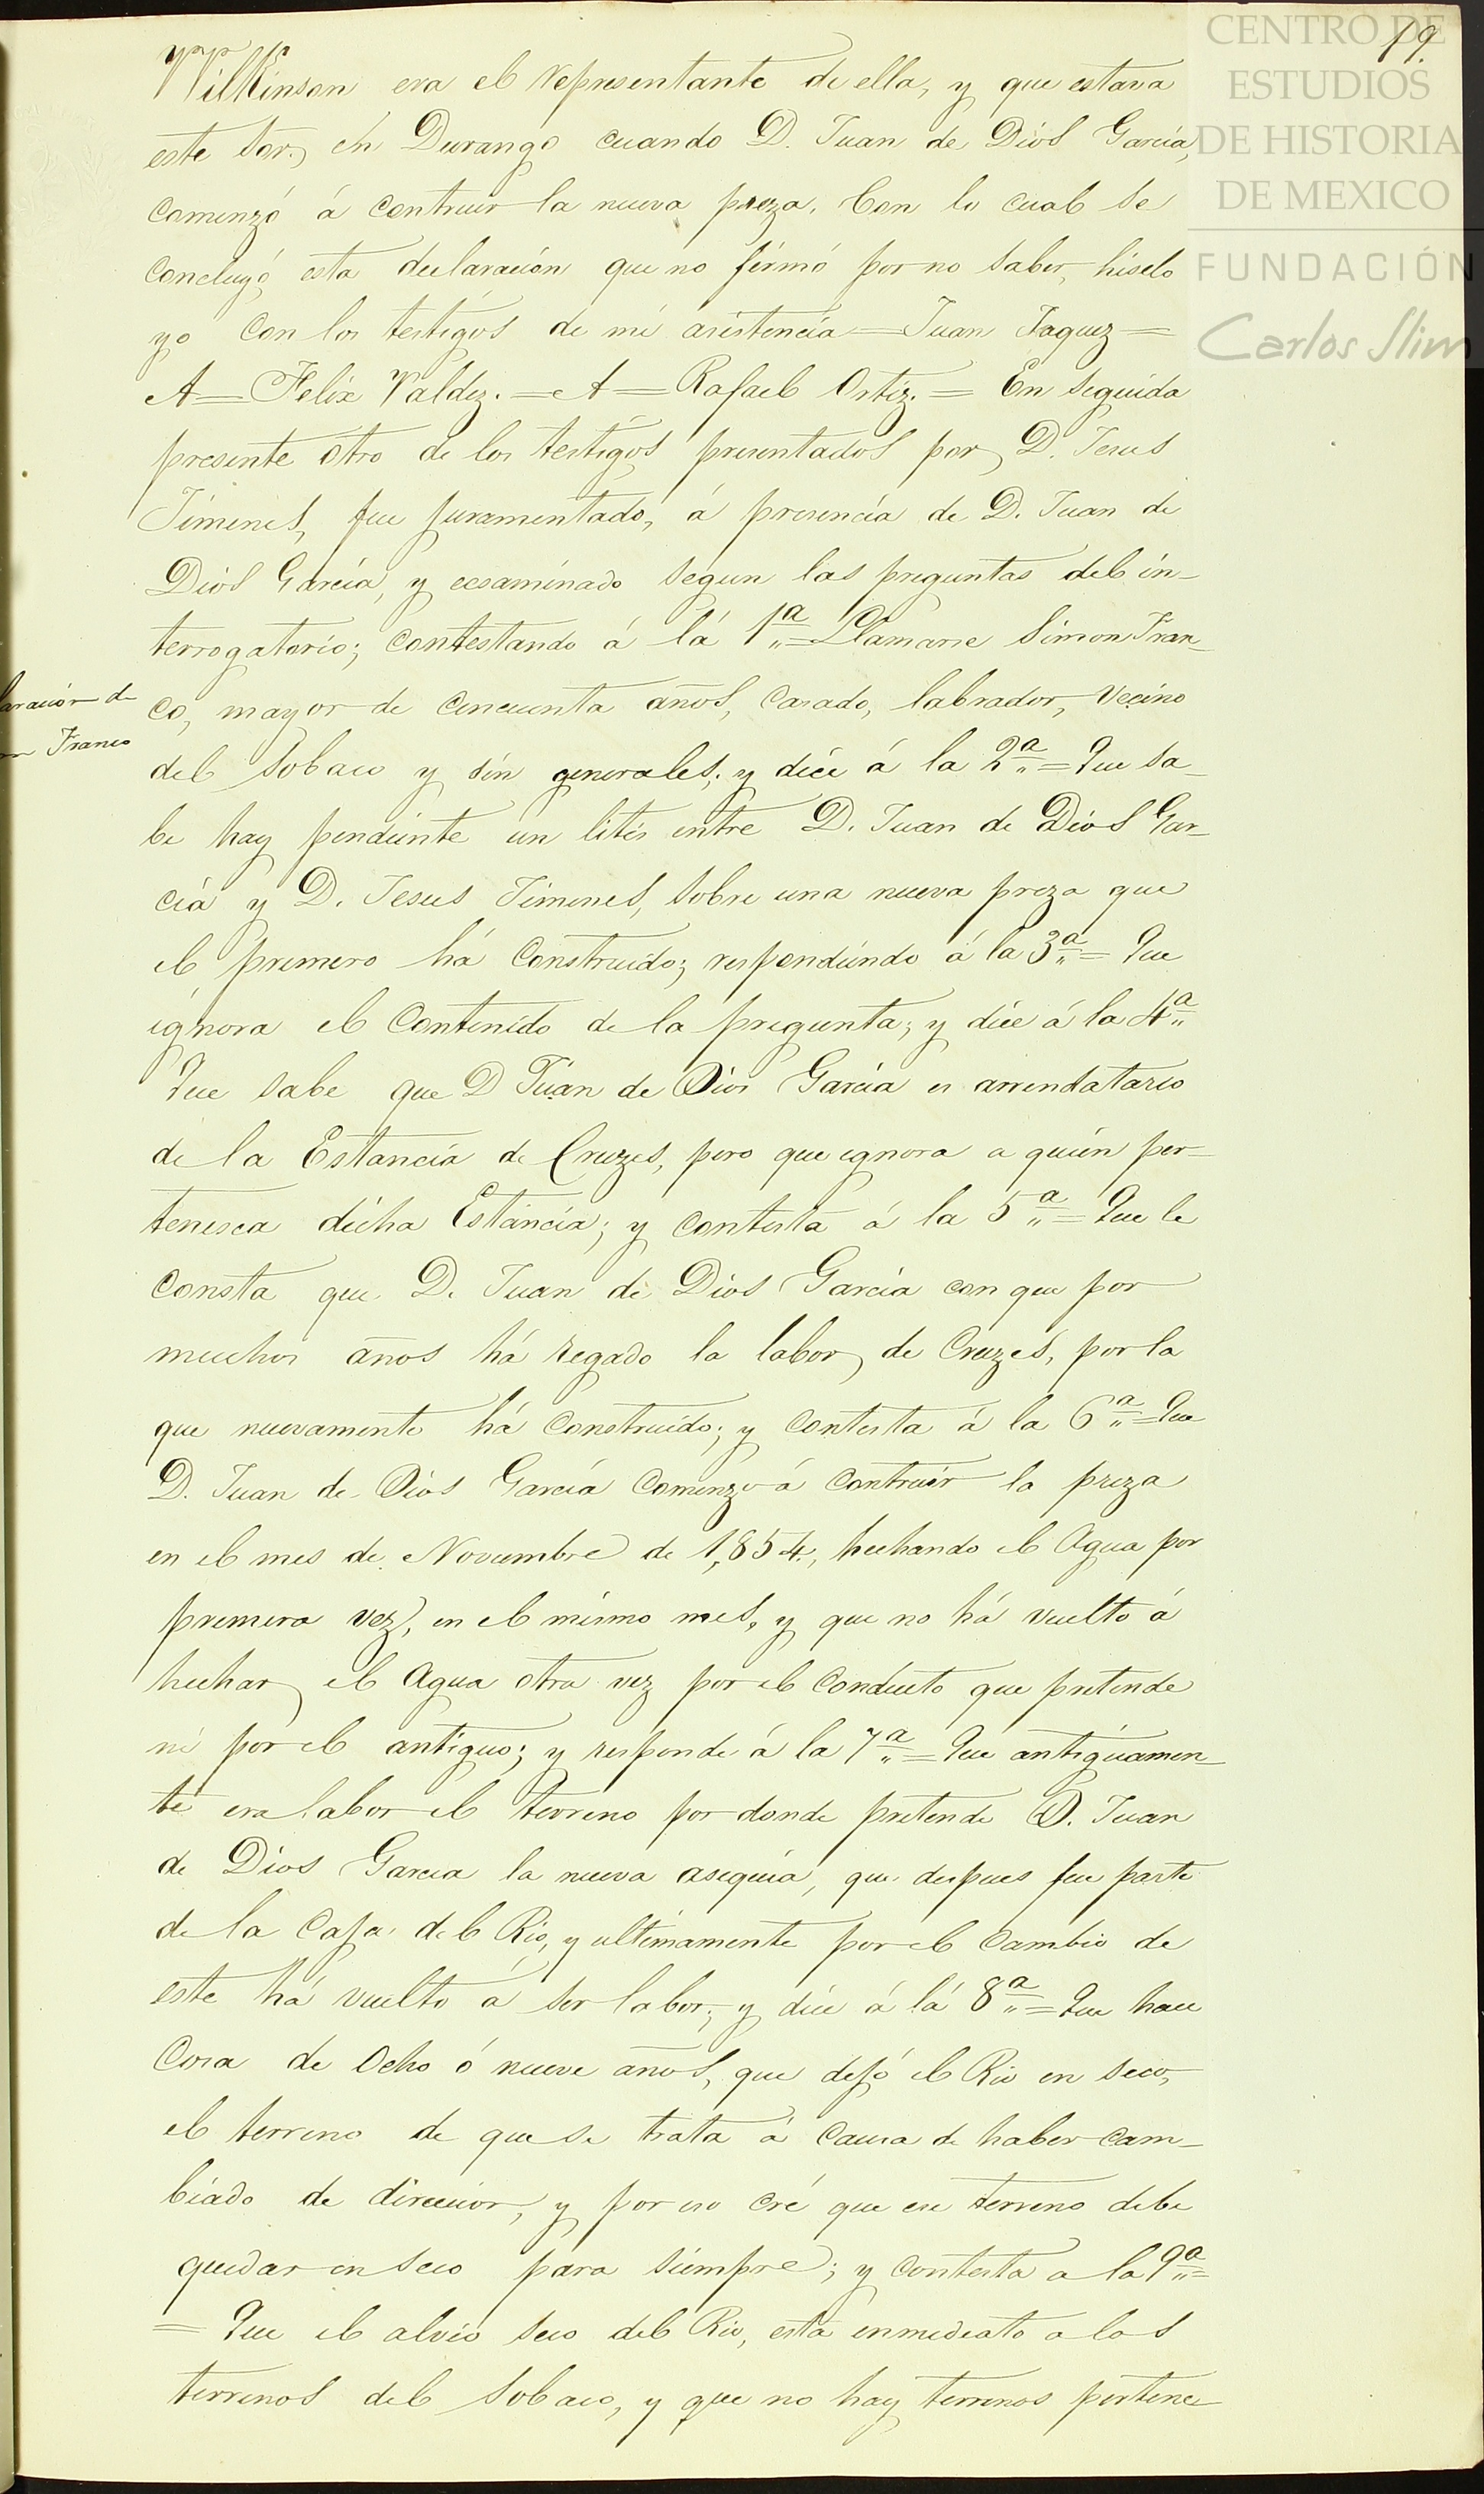 CENTRO DE
ESTUDIOS
DE HISTORIA
DE MEXICO
FUNDACIÓN
Carlos Slim
19.
Wilkinson era el representante de ella, y que estava
este Sor. en Durango cuando D. Juan de Dios García,
comenzó á contruir la nueva preza. Con lo cual se
concluyó esta declaración que no firmó por no saber, híselo
yo con los testigos de mi asistencia = Juan Jaquez =
A = Felix Valdez. = A = Rafael Ortiz. = En seguida
presente otro de los testigos presentados por D. Jesus
Jimenes, fue juramentado, á presencia de D. Juan de
Dios García, y ecsaminado segun las preguntas del in-
terrogatorio; contestando á lá 1ª = Llamarse Simon Fran-
co, mayor de cincuenta años, casado, labrador, vecino
laración de
n Franco
del Sobaco y sin generales; y dice á la 2ª = Que sa-
be hay pendiente un litis entre D. Juan de Dios Gar-
cía y D. Jesus Jimenes, sobre una nueva preza que
el primero há construido; respondiendo á la 3ª = Que
ignora el contenido de la pregunta; y dice á la 4ª
Que sabe que D Juan de Dios García es arrendatario
de la Estancia de Cruzes, pero que ignora a quien per-
tenesca dicha Estancia; y contesta á la 5ª = Que le
consta que D. Juan de Dios García con que por
muchos años há regado la labor de Cruzes, por la
que nuevamente há construido; y contesta á la 6ª = Que
D. Juan de Dios García comenzo á contruir la preza
en el mes de Noviembre de 1,854, hechando el Agua por
primera vez, en el mismo mes, y que no há vuelto á
hechar el Agua otra vez por el conducto que pretende
ni por el antiguo; y responde á la 7ª = Que antiguamen-
te era labor el terreno por donde pretende D. Juan
de Dios Garcia la nueva asequia, que despues fue parte
de la Caja del Rio, y ultimamente por el cambio de
este há vuelto á ser labor; y dice á lá 8ª = Que hace
cosa de ocho ó nueve años, que dejó el Rio en seco,
el terreno de que se trata á causa de haber cam-
biado de direccion, y por eso cré que ese terreno debe
quedar en seco para siempre; y contesta a la 9ª =
= Que el alvio seco del Rio, está inmediato a los
terrenos del Sobaco, y que no hay terrenos pertene